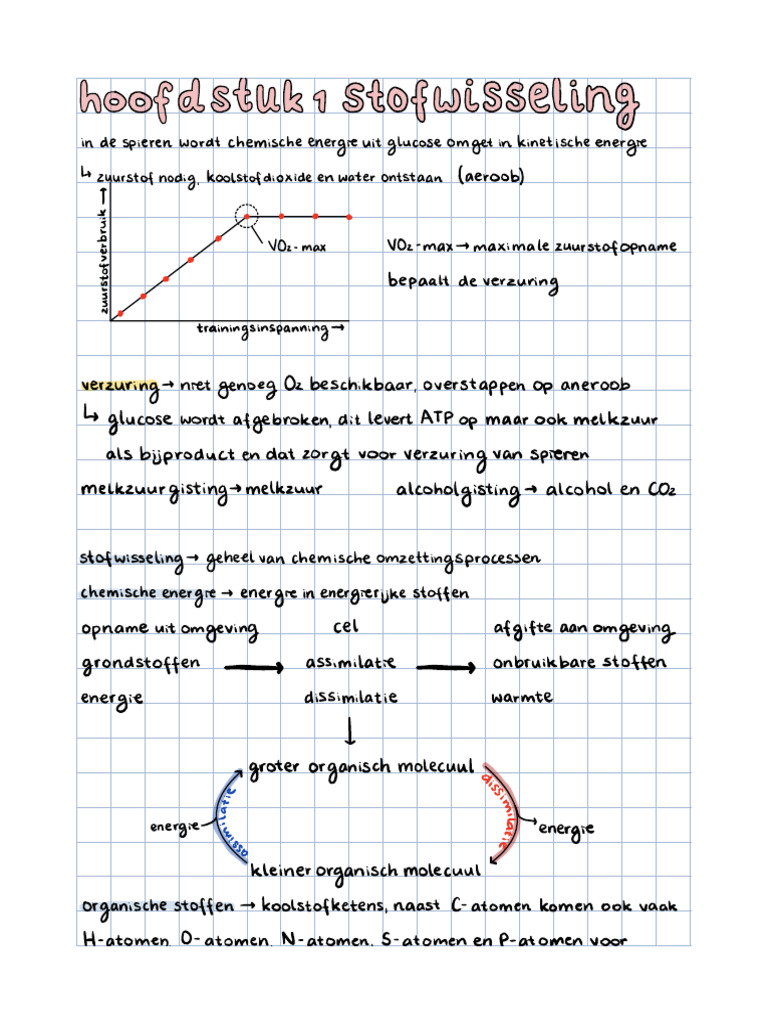 hoofdstuk 1 stofwisseling
in de spieren wordt chemische energie uit glucose omget in kinetische energie
↳ zuurstof nodig, koolstofdioxide en water ontstaan (aeroob)
zuurstofverbruik →
VO2-max
VO2-max → maximale zuurstofopname
bepaalt de verzuring
trainingsinspanning →
verzuring → niet genoeg O2 beschikbaar, overstappen op aneroob
↳ glucose wordt afgebroken, dit levert ATP op maar ook melkzuur
als bijproduct en dat zorgt voor verzuring van spieren
melkzuurgisting → melkzuur alcoholgisting → alcohol en CO2
stofwisseling → geheel van chemische omzettingsprocessen
chemische energie → energie in energierijke stoffen
opname uit omgeving cel afgifte aan omgeving
grondstoffen → assimilatie → onbruikbare stoffen
energie dissimilatie warmte
↓
groter organisch molecuul
assimilatie
dissimilatie
energie
energie
kleiner organisch molecuul
organische stoffen → koolstofketens, naast C-atomen komen ook vaak
H-atomen, O-atomen, N-atomen, S-atomen en P-atomen voor